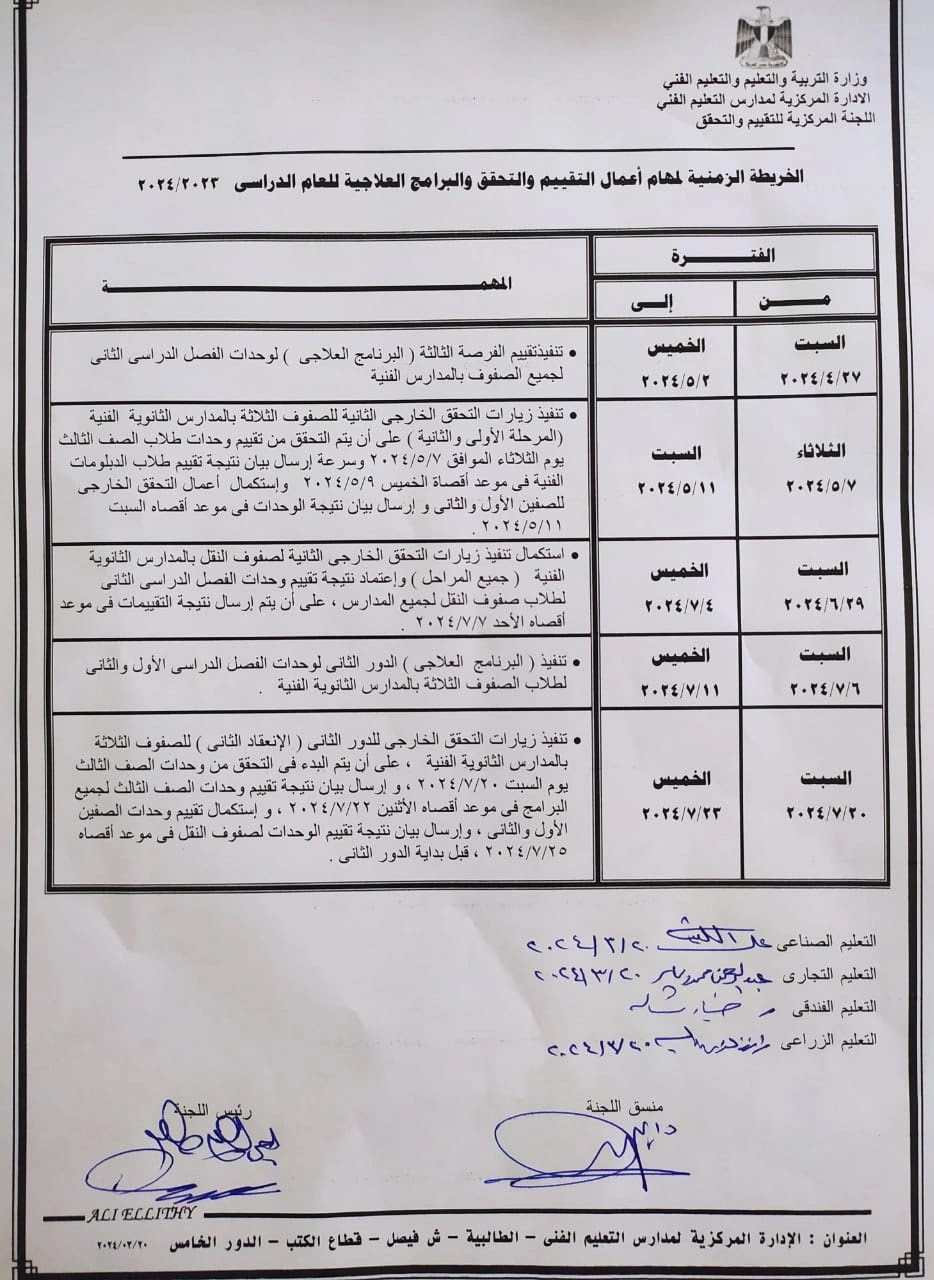 وزارة التربية والتعليم والتعليم الفني
الادارة المركزية لمدارس التعليم الفني
اللجنة المركزية للتقييم والتحقق
الخريطة الزمنية لمهام أعمال التقييم والتحقق والبرامج العلاجية للعام الدراسى ٢٠٢٤/٢٠٢٣
الفتـــرة
المهمـــة
مـــن
إلـــى
السبت
٢٠٢٤/٤/٢٧
الخميس
٢٠٢٤/٥/٢
• تنفيذتقييم الفرصة الثالثة ( البرنامج العلاجى ) لوحدات الفصل الدراسى الثانى
لجميع الصفوف بالمدارس الفنية
الثلاثاء
٢٠٢٤/٥/٧
السبت
٢٠٢٤/٥/١١
• تنفيذ زيارات التحقق الخارجى الثانية للصفوف الثلاثة بالمدارس الثانوية الفنية
(المرحلة الأولى والثانية ) على أن يتم التحقق من تقييم وحدات طلاب الصف الثالث
يوم الثلاثاء الموافق ٢٠٢٤/٥/٧ وسرعة إرسال بيان نتيجة تقييم طلاب الدبلومات
الفنية فى موعد أقصاة الخميس ٢٠٢٤/٥/٩ وإستكمال أعمال التحقق الخارجى
للصفين الأول والثانى و إرسال بيان نتيجة الوحدات فى موعد أقصاه السبت
٢٠٢٤/٥/١١ .
السبت
٢٠٢٤/٦/٢٩
الخميس
٢٠٢٤/٧/٤
• استكمال تنفيذ زيارات التحقق الخارجى الثانية لصفوف النقل بالمدارس الثانوية
الفنية ( جميع المراحل ) وإعتماد نتيجة تقييم وحدات الفصل الدراسى الثانى
لطلاب صفوف النقل لجميع المدارس ، على أن يتم إرسال نتيجة التقييمات فى موعد
أقصاه الأحد ٢٠٢٤/٧/٧ .
السبت
٢٠٢٤/٧/٦
الخميس
٢٠٢٤/٧/١١
• تنفيذ ( البرنامج العلاجى ) الدور الثانى لوحدات الفصل الدراسى الأول والثانى
لطلاب الصفوف الثلاثة بالمدارس الثانوية الفنية .
السبت
٢٠٢٤/٧/٢٠
الخميس
٢٠٢٤/٧/٢٣
• تنفيذ زيارات التحقق الخارجى للدور الثانى ( الإنعقاد الثانى ) للصفوف الثلاثة
بالمدارس الثانوية الفنية ، على أن يتم البدء فى التحقق من وحدات الصف الثالث
يوم السبت ٢٠٢٤/٧/٢٠ ، و إرسال بيان نتيجة تقييم وحدات الصف الثالث لجميع
البرامج فى موعد أقصاه الأثنين ٢٠٢٤/٧/٢٢ ، و إستكمال تقييم وحدات الصفين
الأول والثانى ، وإرسال بيان نتيجة تقييم الوحدات لصفوف النقل فى موعد أقصاه
٢٠٢٤/٧/٢٥ ، قبل بداية الدور الثانى .
التعليم الصناعى ٢٠٢٤/٣/٢٠
التعليم التجارى ٢٠٢٤/٣/٢٠
التعليم الفندقى
التعليم الزراعى ٢٠٢٤/٣/٢٠
منسق اللجنة
رئيس اللجنة
ALI ELLITHY
العنوان : الإدارة المركزية لمدارس التعليم الفنى – الطالبية – ش فيصل – قطاع الكتب – الدور الخامس ٢٠٢٤/٠٣/٢٠